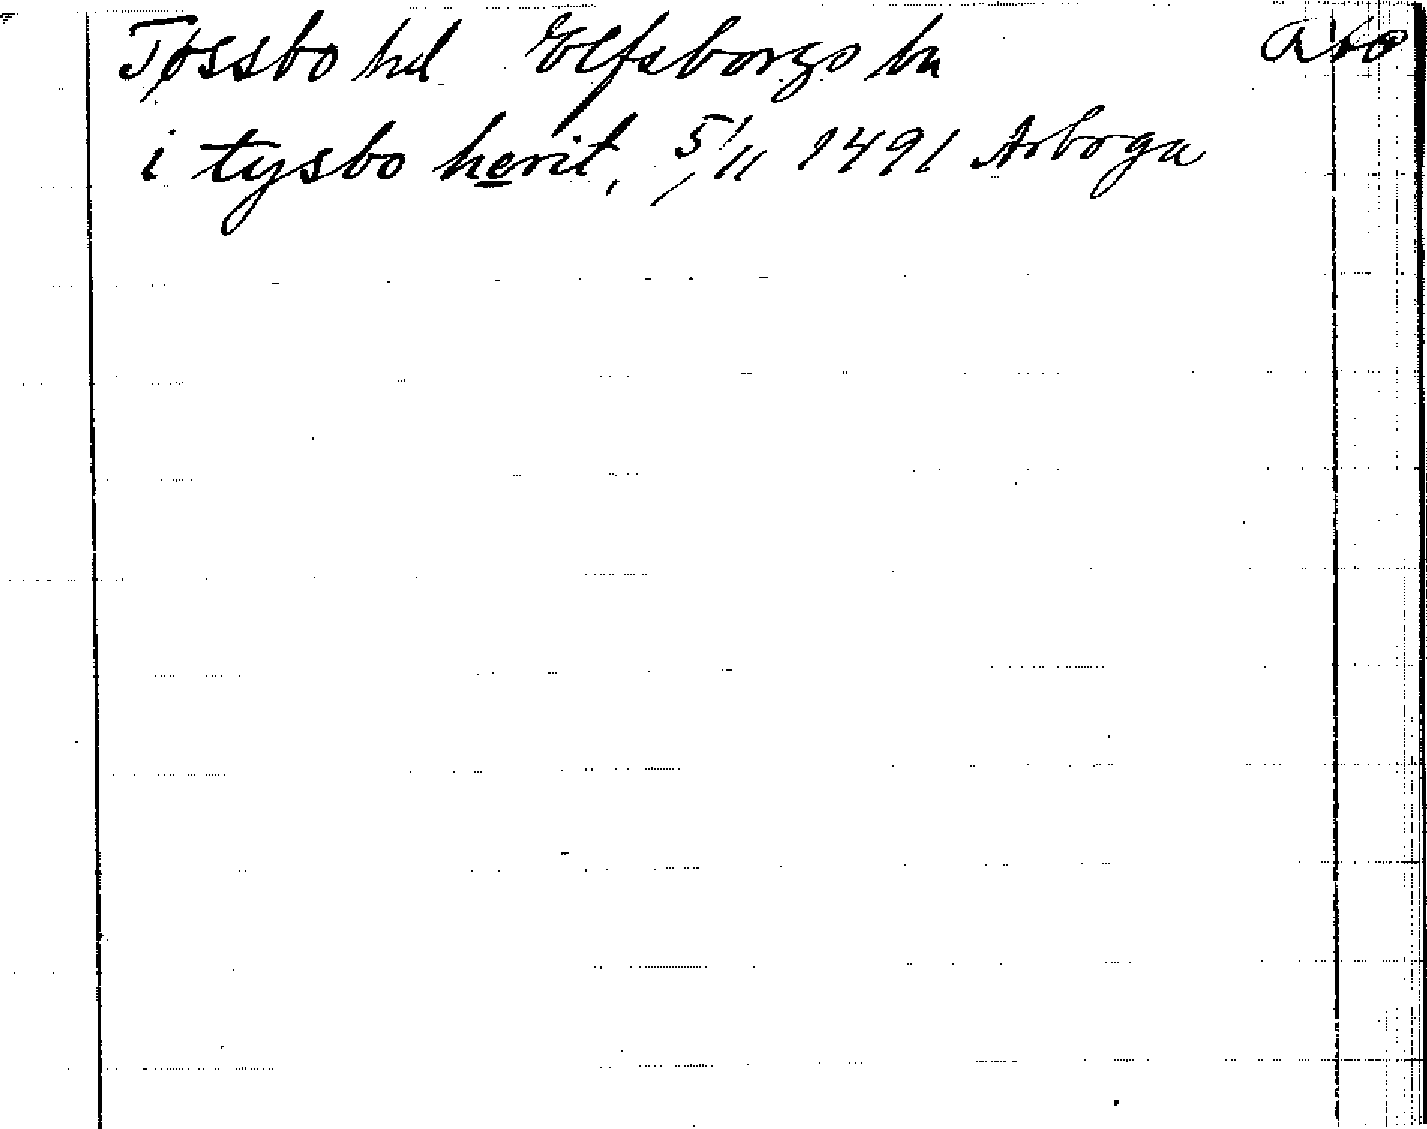 Tössbo hd Elfsborgs ln Abo
i tysbo herit, 5/11 1491 Arboga